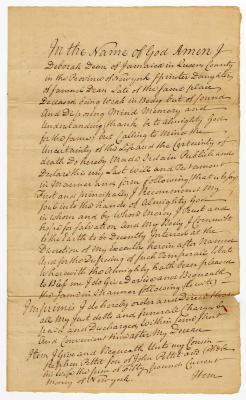 In the Name of God Amen I
Deborah Dean of Jamaica in Queens County
in the Province of New york Spinster Daughter
of Dean Late of the Same place
Deceased being weak in Body but of Sound
And Disposing Mind Memory and
Understanding thanks to Almighty God
for the Same but Calling to Mind the
Uncertainty of this life and the Certainty of
death Do hereby Made Ordain Publish and
Declare this my Last Will and Testament
in Manner and form following that is to say
First and principally I Recommend My
Soul into the hands of Almighty God
in whom and by whose Mercy I trust and
hope for Salvation And my Body I Committ
to the Earth to be Decently Interred at the
Discretion of my Executor herein after Named
And for the Disposing of Such Temporale Estate
Wherewith the Almighty hath been pleased
to Bless me I do Give Devise and Bequeath
the Same in Manner following (to wit)
Imprimis I do hereby order and Direct that
all My Just debts and funerall Charges be
paid and Discharged within Some Short
And Convenient time after My Decease
Item I Give and Bequeath Unto my Cousin
Stephen Pettet Son of John Pettet and
his wife the Sum of fifty pounds Current
money of New york
Item